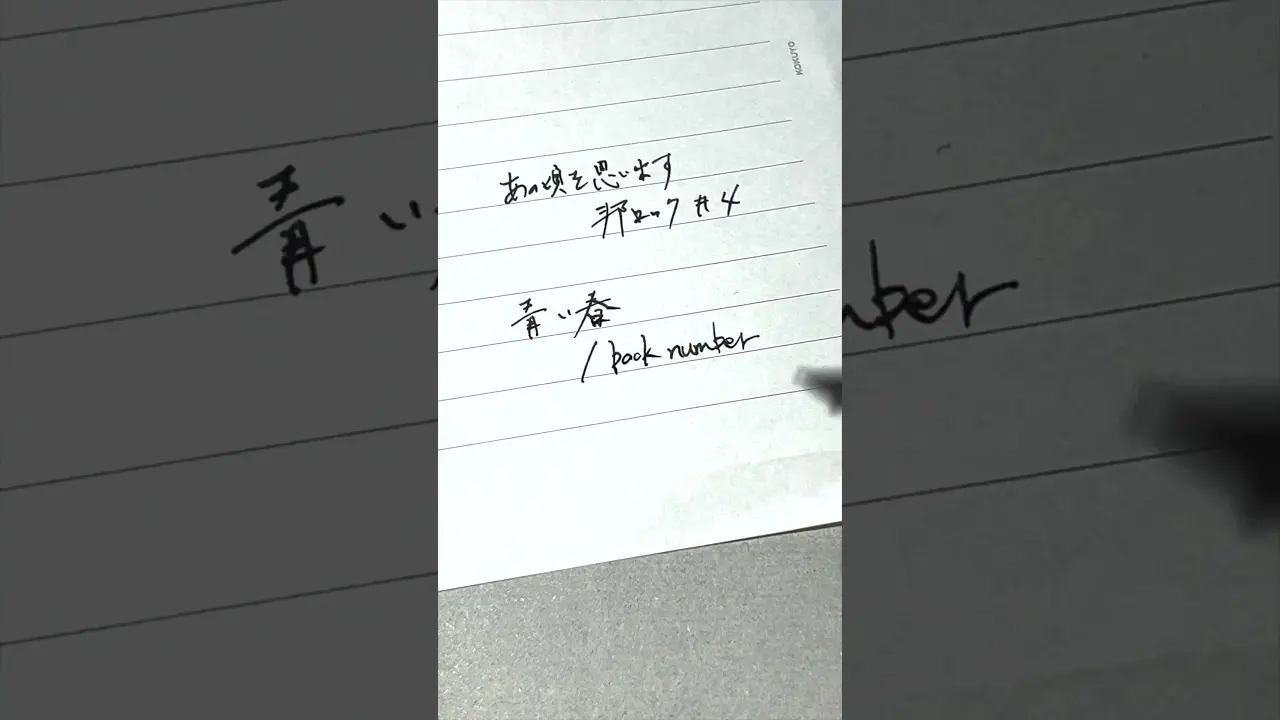 KOKUYO
あの頃を思います
邦ロック #4
青い春
/book number